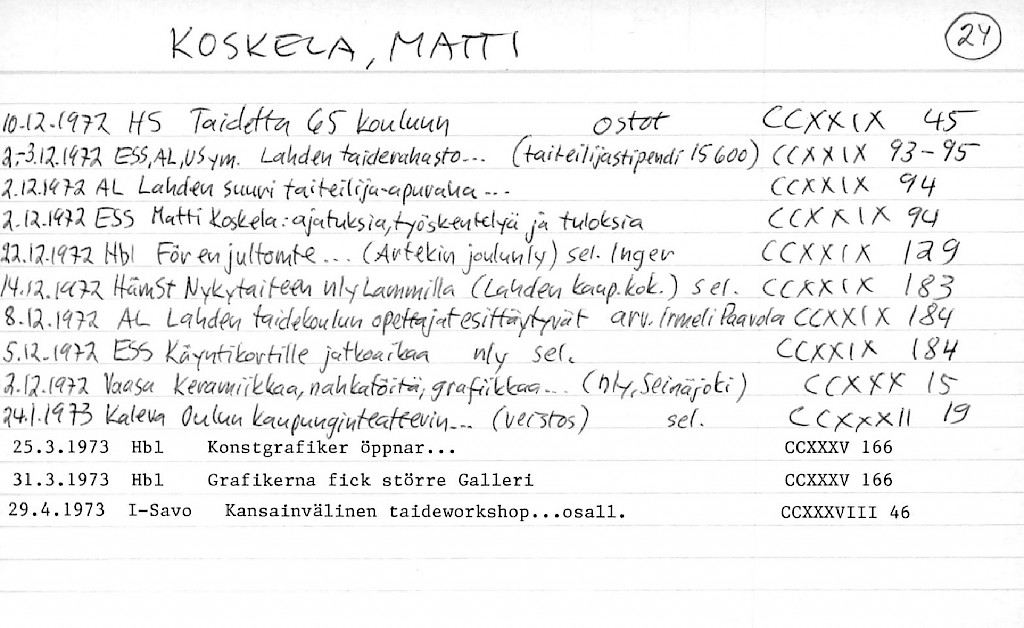 KOSKELA, MATTI 24
10.12.1972 HS Taidetta 65 kouluun ostot CCXXIX 45
2.-3.12.1972 ESS, AL, US ym. Lahden taiderahasto... (taiteilijastipendi 15 600) CCXXIX 93-95
2.12.1972 AL Lahden suuri taiteilija-apuraha... CCXXIX 94
2.12.1972 ESS Matti Koskela: ajatuksia, työskentelyä ja tuloksia CCXXIX 94
22.12.1972 Hbl För en jultomte... (Artekin joulunly) sel. Inger CCXXIX 129
14.12.1972 HämSt Nykytaiteen nly Lammilla (Lahden kaup.kok.) sel. CCXXIX 183
8.12.1972 AL Lahden taidekoulun opettajat esittäytyvät arv. Irmeli Paavola CCXXIX 184
5.12.1972 ESS Käyntikortille jatkoaikaa nly sel. CCXXIX 184
2.12.1972 Vaasa Keramiikkaa, nahkatöitä, grafiikkaa... (nly, Seinäjoki) CCXXX 15
24.1.1973 Kaleva Oulun kaupunginteatterin... (veistos) sel. CCXXXII 19
25.3.1973 Hbl Konstgrafiker öppnar... CCXXXV 166
31.3.1973 Hbl Grafikerna fick större Galleri CCXXXV 166
29.4.1973 I-Savo Kansainvälinen taideworkshop...osall. CCXXXVIII 46